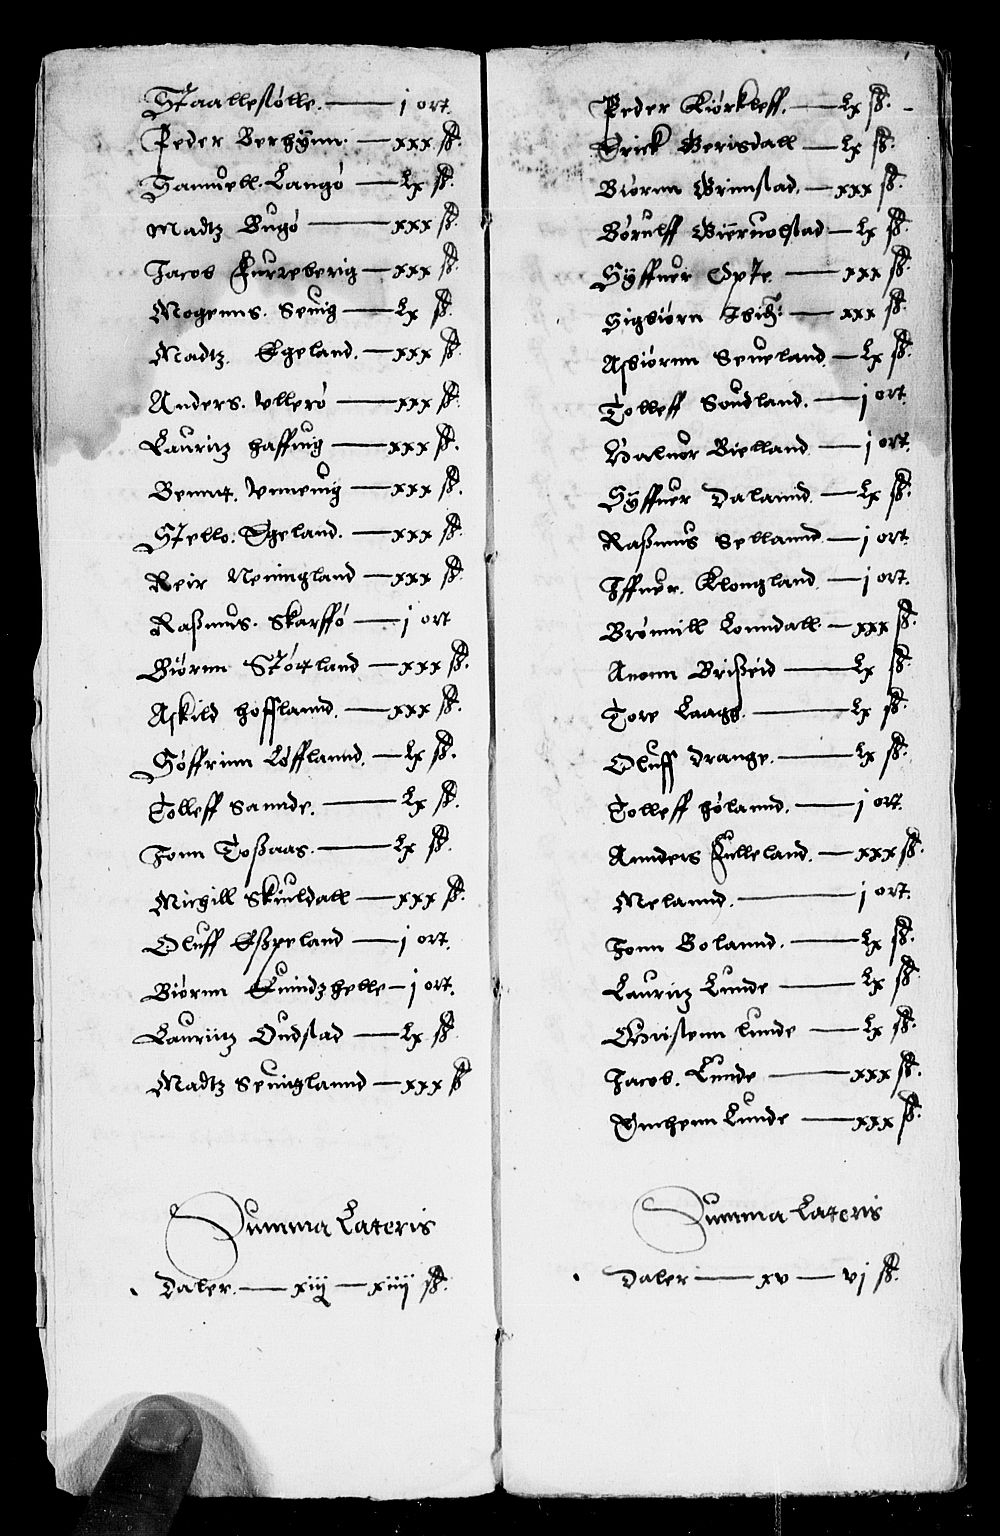 Staallesølle. — j ort
Peder Berhÿnn — xxx ß.
Samuell. Langø — Lx ß.
Madtz Bugø — xxx ß.
Jacob Furreberig — xxx ß.
Mogenns. Seuig — Lx ß.
Madtz. Egeland. — xxx ß.
Anders. Vllerø — xxx ß.
Lauritz haffuig — xxx ß.
Bennt. Vnneuig — xxx ß.
Stello. Egeland. — xxx ß.
Reir Neningland — xxx ß.
Raßmus. Skarffø — j ort
Biørnn Størtland — xxx ß.
Askild hofflannd. — xxx ß.
Søffrinn Løfflannd. — Lx ß.
Tolleff Sannde. — Lx ß.
Jonn Toßaas. — Lx ß.
Michill Skiuldall — xxx ß.
Oluff Eßpeland — j ort.
Biørnn Quindzhelle — j ort.
Lauritz Oudstad — Lx ß
Madtz Seuiglannd — xxx ß
Summa Lateris
Daler. — xiij — xiiij ß.
Peder Kiørkleff. — Lx ß.
Erick Berisdall — Lx ß.
Biørnn Grimstad. — xxx ß.
Børulff Biernolstad — Lx ß.
Syffuer Opte — xxx ß.
Sigbiørn — xxx ß.
Asbiørnn Seueland — Lx ß.
Tolleff Soudland. — j ort
Valuor Bielland — j ort.
Syffuer Dalannd — Lx ß.
Raßmus Sellannd — j ort.
Iffuer. Klongland — j ort.
Brønnill Lonndall — xxx ß.
Anonn Brißeid — Lx ß
Tore Laage. — Lx ß.
Oluff Drange. — Lx ß.
Tolleff hølannd. — j ort.
Annders Fulleland. — xxx ß.
Melannd. — j ort.
Jonn Bolannd. — Lx ß.
Lauritz Lunde — Lx ß.
Christenn Lunde — Lx ß.
Jacob. Lunde — xxx ß.
Lunde — xxx ß.
Summa Lateris
Daler — xv — vj ß.